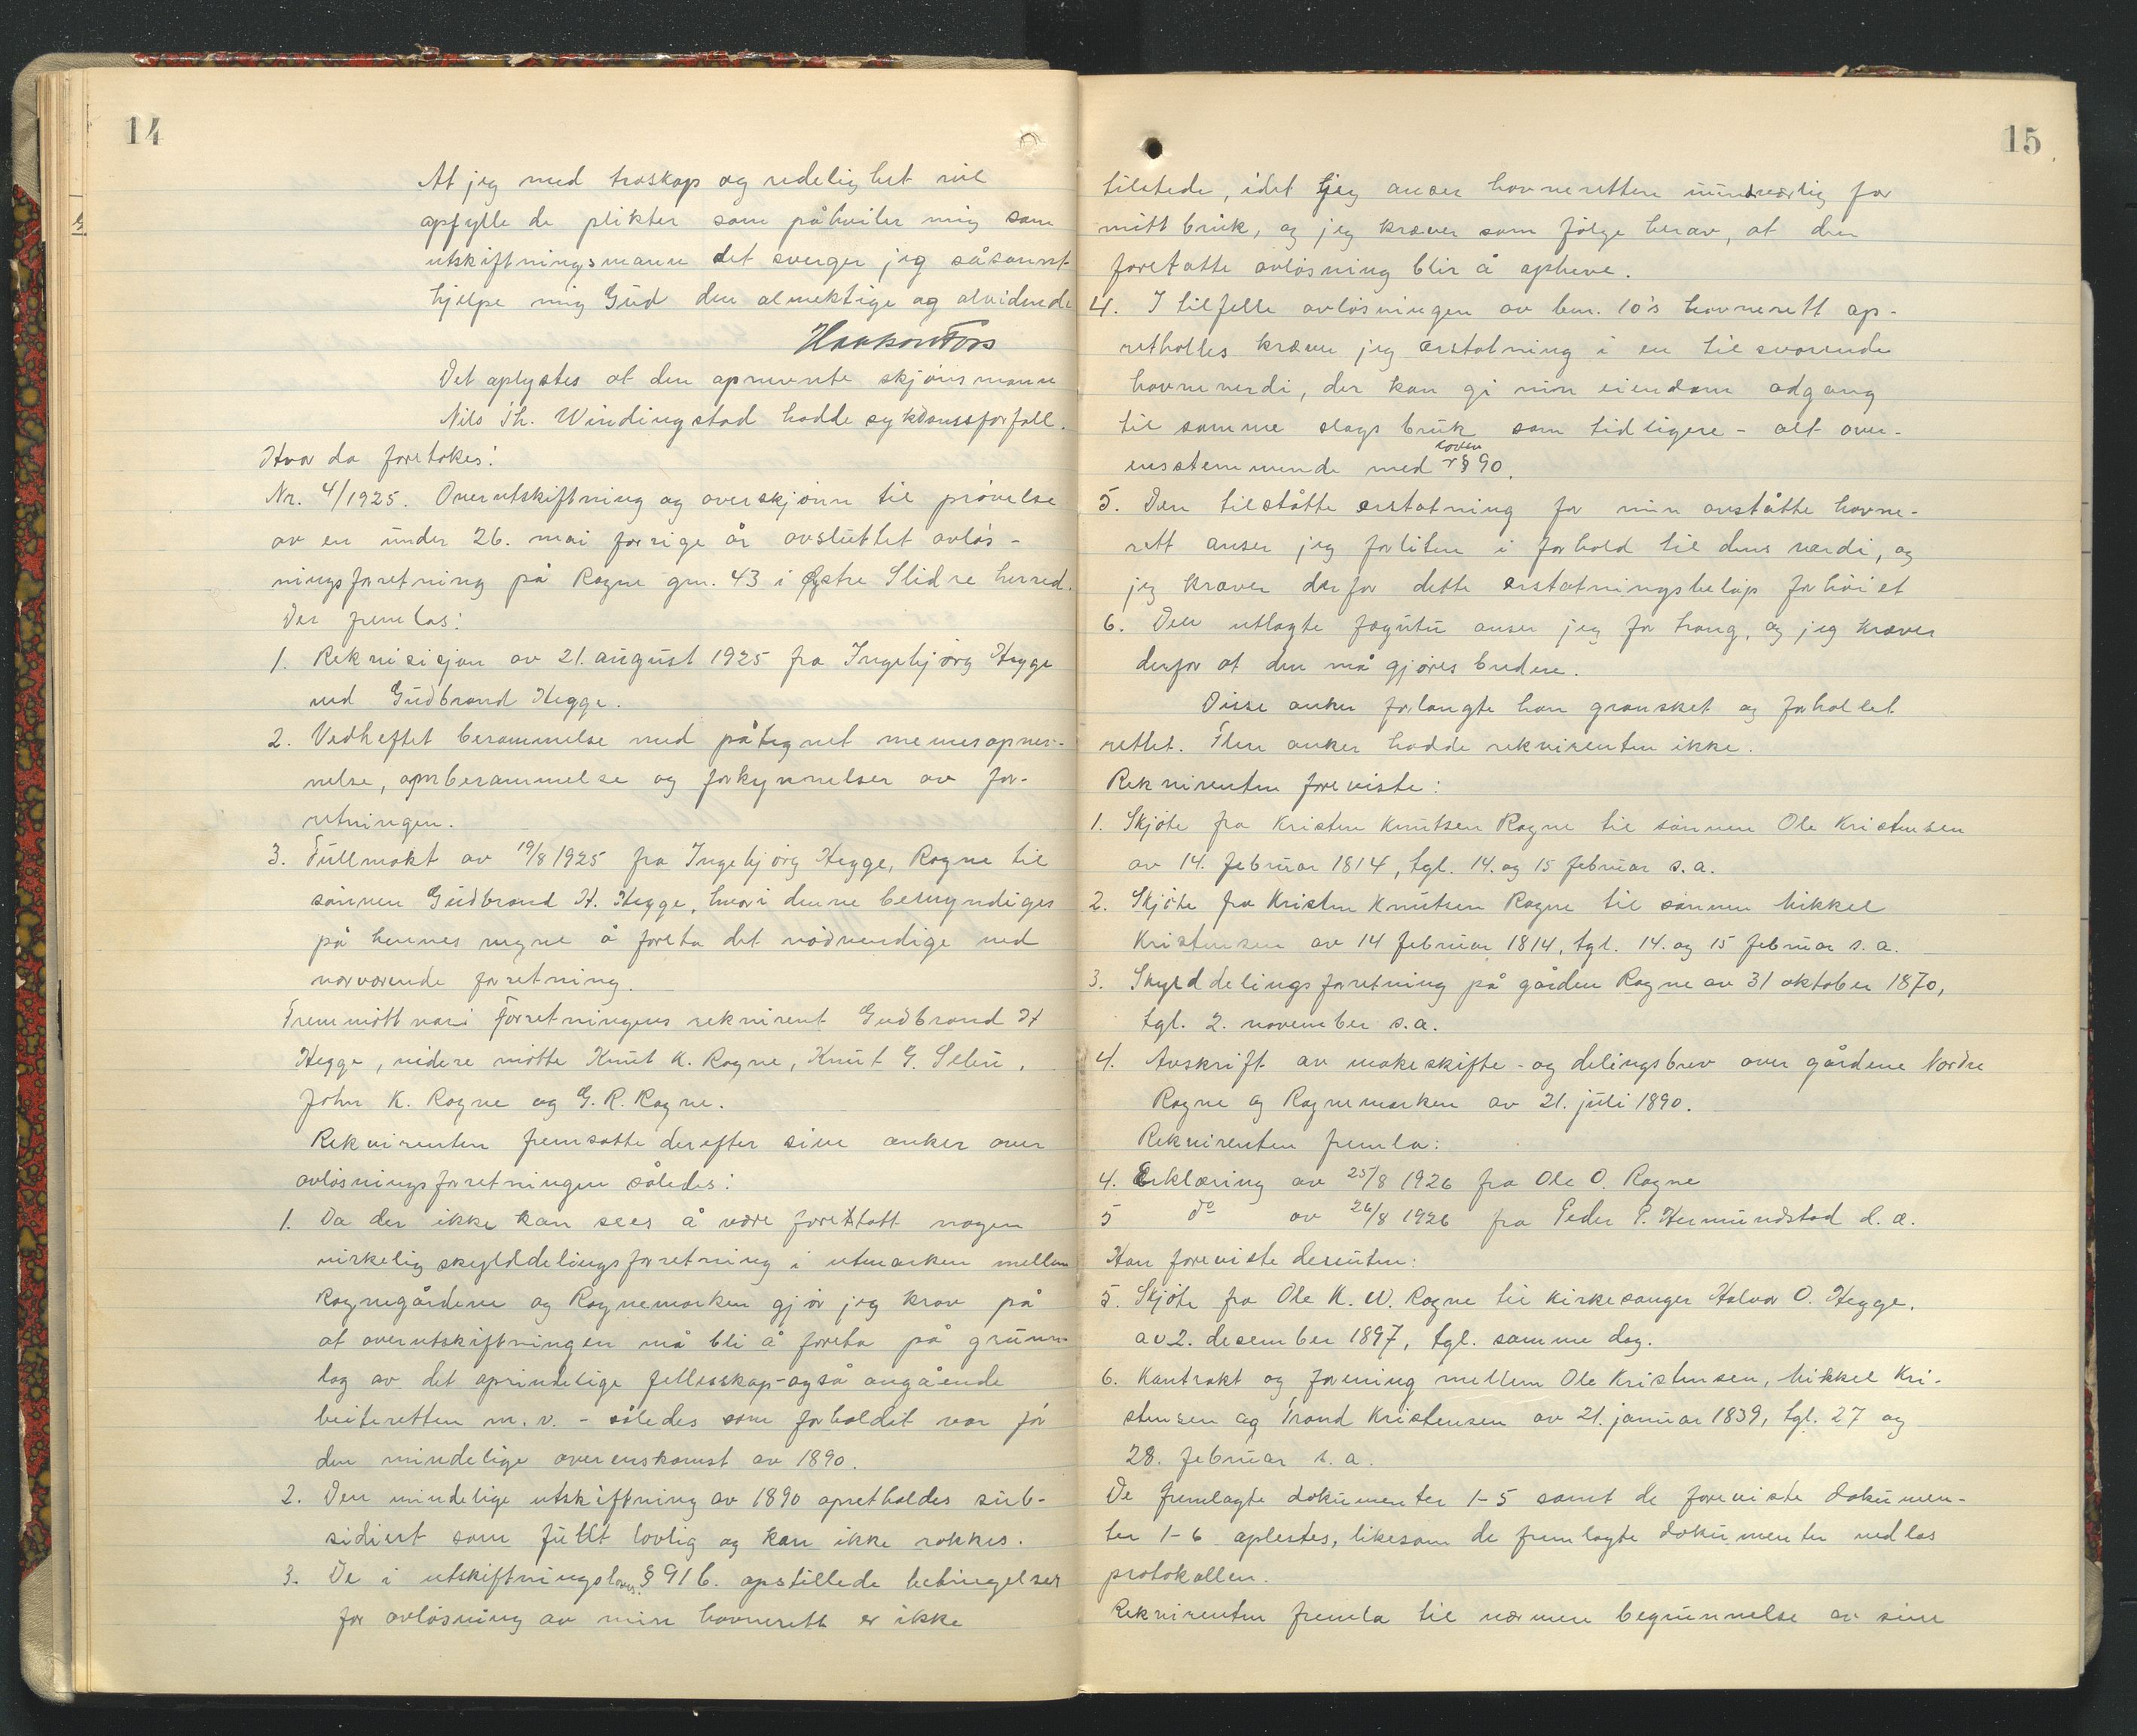 14
At jeg med troskap og redelighet vil
opfylle de plikter som påhviler mig som
utskiftningsmann det sverger jeg såsannt
hjelpe mig Gud den almektige og alvidende
Haakon Foss
Det oplystes at den opnevnte skjönsmann
Nils Th. Windingstad hadde sykdomsforfall.
Hvor da foretokes:
Nr. 4/1925. Overutskiftning og overskjönn til prövelse
av en under 26. mai forrige år avsluttet avlös-
ningsforretning på Rogne gnr. 43 i Östre Slidre herred.
Der fremlas:
1. Rekvisisjon av 21. august 1925 fra Ingebjörg Hegge
ved Gudbrand Hegge.
2. Vedheftet berammelse med påtegnet mennsopnev-
nelse, omberammelse og forkynnelser av for-
retningen.
3. Fullmakt av 19/8 1925 fra Ingebjörg Hegge, Rogne til
sönnen Gudbrand H. Hegge, hvori denne bemyndiges
på hennes vegne å foreta det nödvendige ved
nærværende forretning.
Fremmött var i forretningens rekvirent Gudbrand H
Hegge, videre mötte Knut K. Rogne, Knut G. Selju,
John K. Rogne og G. R. Rogne.
Rekvirenten fremsatte derefter sine anker over
avlösningsforretningen således:
1. Da der ikke kan sees å være foretatt nogen
virkelig skylddelingsforretning i utmarken mellem
Rognegårdene og Rognemarken gjör jeg krav på
at overutskiftningen må bli å foreta på grunn-
lag av det oprindelige fellesskap - også angående
beiteretten m. v. - således som forholdet var för
den mindelige overenskomst av 1890.
2. Den mindelige utskiftning av 1890 opretholdes sub-
sidiert som fullt lovlig og kan ikke rokkes.
3. De i utskiftningslovens § 91 b. opstillede betingelser
for avlösning av min havnerett er ikke
15
tilstede, idet jeg anser havneretten uundværlig for
mitt bruk, og jeg krever som fölge herav, at den
foretatte avlösning blir å opheve.
4. I tilfelle avlösningen av bnr. 10's havnerett op-
retholles krever jeg erstatning i en tilsvarende
havneverdi, der kan gi min eiendom adgang
til samme slags bruk som tidligere - alt over-
ensstemmende med loven § 90.
5. Den tilståtte erstatning for min avståtte havne-
rett anser jeg for liten i forhold til dens verdi, og
jeg krever derfor dette erstatningsbelöp forhöiet
6. Den utlagte fægutu anser jeg for trang, og jeg krever
derfor at den må gjöres bredere.
Disse anker forlangte han gransket og forhollet
rettet. Flere anker hadde rekvirenten ikke.
Rekvirenten foreviste:
1. Skjöte fra Kristen Knutsen Rogne til sönnen Ole Kristensen
av 14. februar 1814, tgl. 14. og 15 februar s.a.
2. Skjöte fra Kristen Knutsen Rogne til sönnen Mikkel
Kristensen av 14 februar 1814, tgl. 14. og 15 februar s.a.
3. Skylddelingsforretning på gården Rogne av 31 oktober 1870,
tgl. 2. november s.a.
4. Avskrift av makeskifte- og delingsbrev over gårdene Nordre
Rogne og Rognemarken av 21. juli 1890.
Rekvirenten fremla:
4. Erklæring av 25/8 1926 fra Ole O. Rogne
5 do av 26/8 1926 fra Peder P. Hermundstad d. æ.
Han foreviste desuten:
5. Skjöte fra Ole K. W. Rogne til kirkesanger Halvor O. Hegge,
av 2. desember 1897, tgl. samme dag.
6. Kontrakt og forening mellem Ole Kristensen, Mikkel Kri-
stensen og Trond Kristensen av 21. januar 1839, tgl. 27 og
28. februar s.a.
De fremlagte dokumenter 1-5 samt de foreviste dokumen-
ter 1-6 oplestes, likesom de fremlagte dokumenter vedlas
protokollen.
Rekvirenten fremla til nærmere begrunnelse av sine